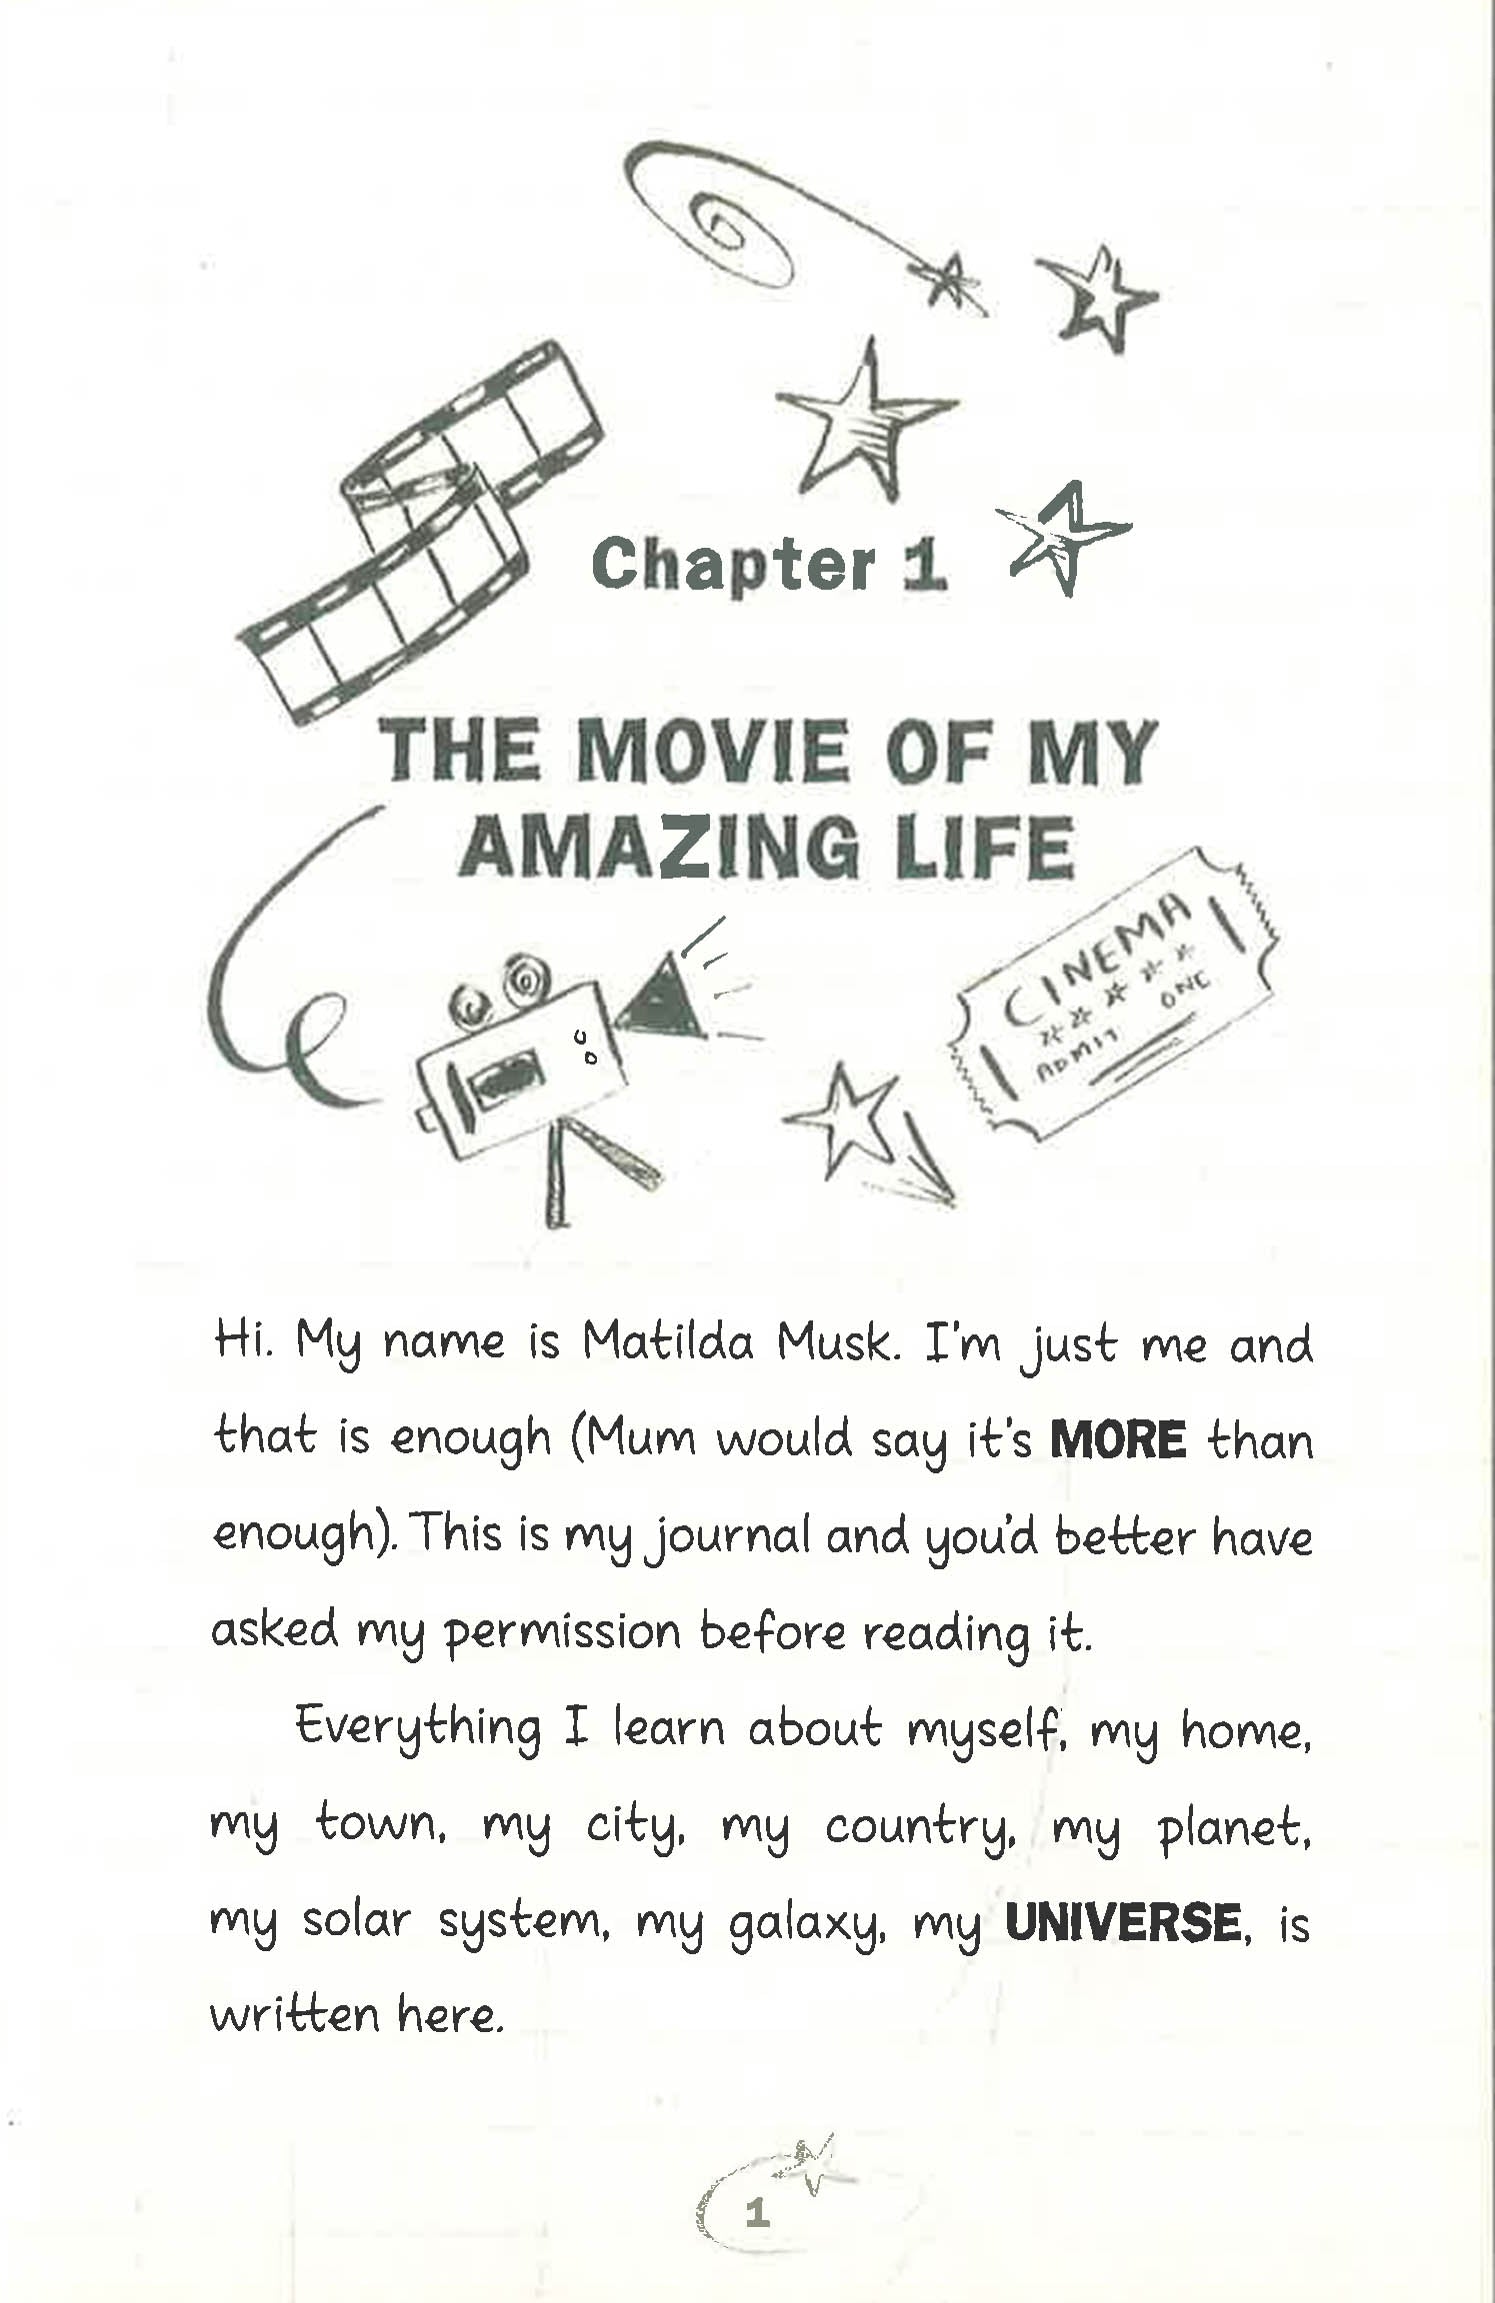 Chapter 1
THE MOVIE OF MY
AMAZING LIFE
CINEMA
ADMIT ONE
Hi. My name is Matilda Musk. I'm just me and
that is enough (Mum would say it's MORE than
enough). This is my journal and you'd better have
asked my permission before reading it.
Everything I learn about myself, my home,
my town, my city, my country, my planet,
my solar system, my galaxy, my UNIVERSE, is
written here.
1